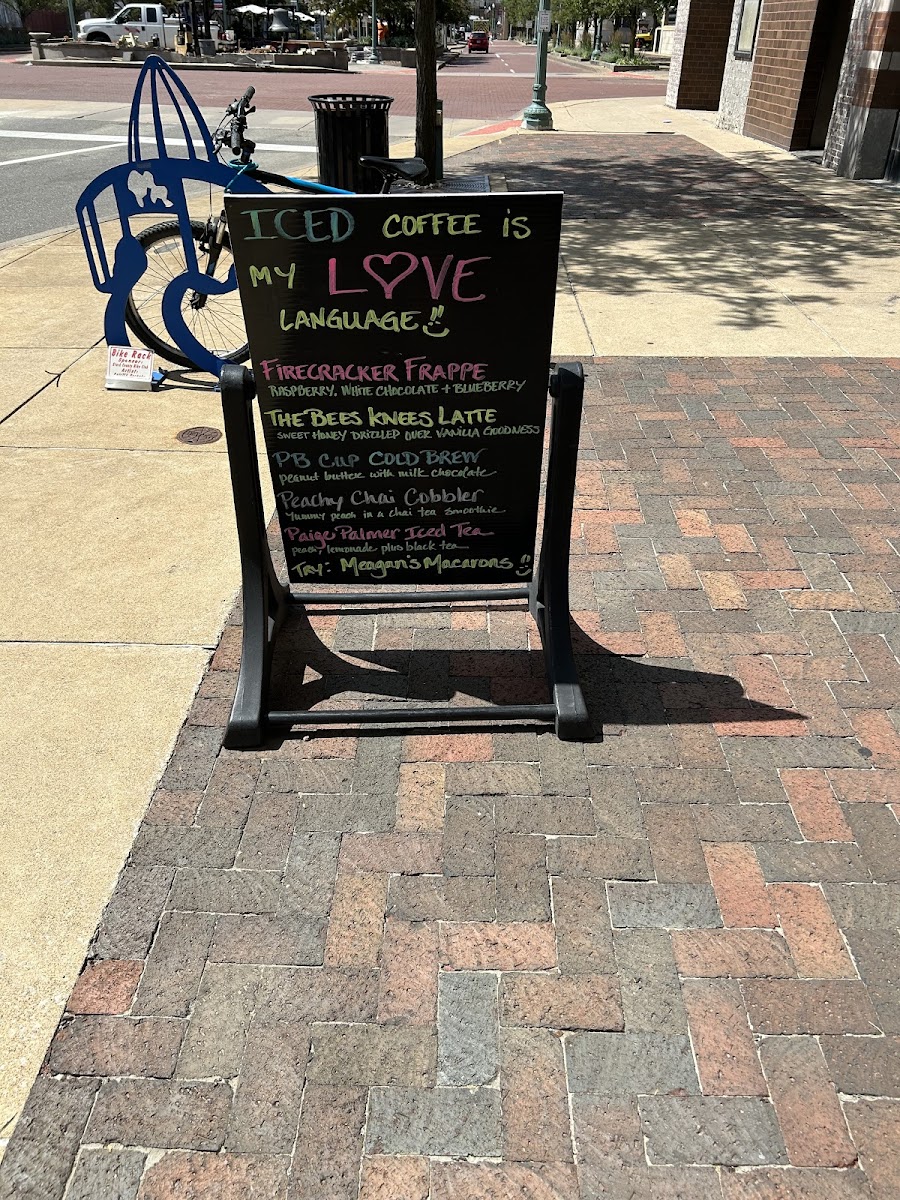 ICED COFFEE IS
MY LOVE
LANGUAGE!!
FIRECRACKER FRAPPE
RASPBERRY, WHITE CHOCOLATE + BLUEBERRY
THE BEES KNEES LATTE
SWEET HONEY DRIZZLED OVER VANILLA GOODNESS
PB CUP COLD BREW
peanut butter with milk chocolate
Peachy Chai Cobbler
Yummy peach in a chai tea smoothie
Paige Palmer Iced Tea
peach, lemonade plus black tea
TRY: Meagan's Macarons!!
Bike Rack
Sponsor:
Artist: